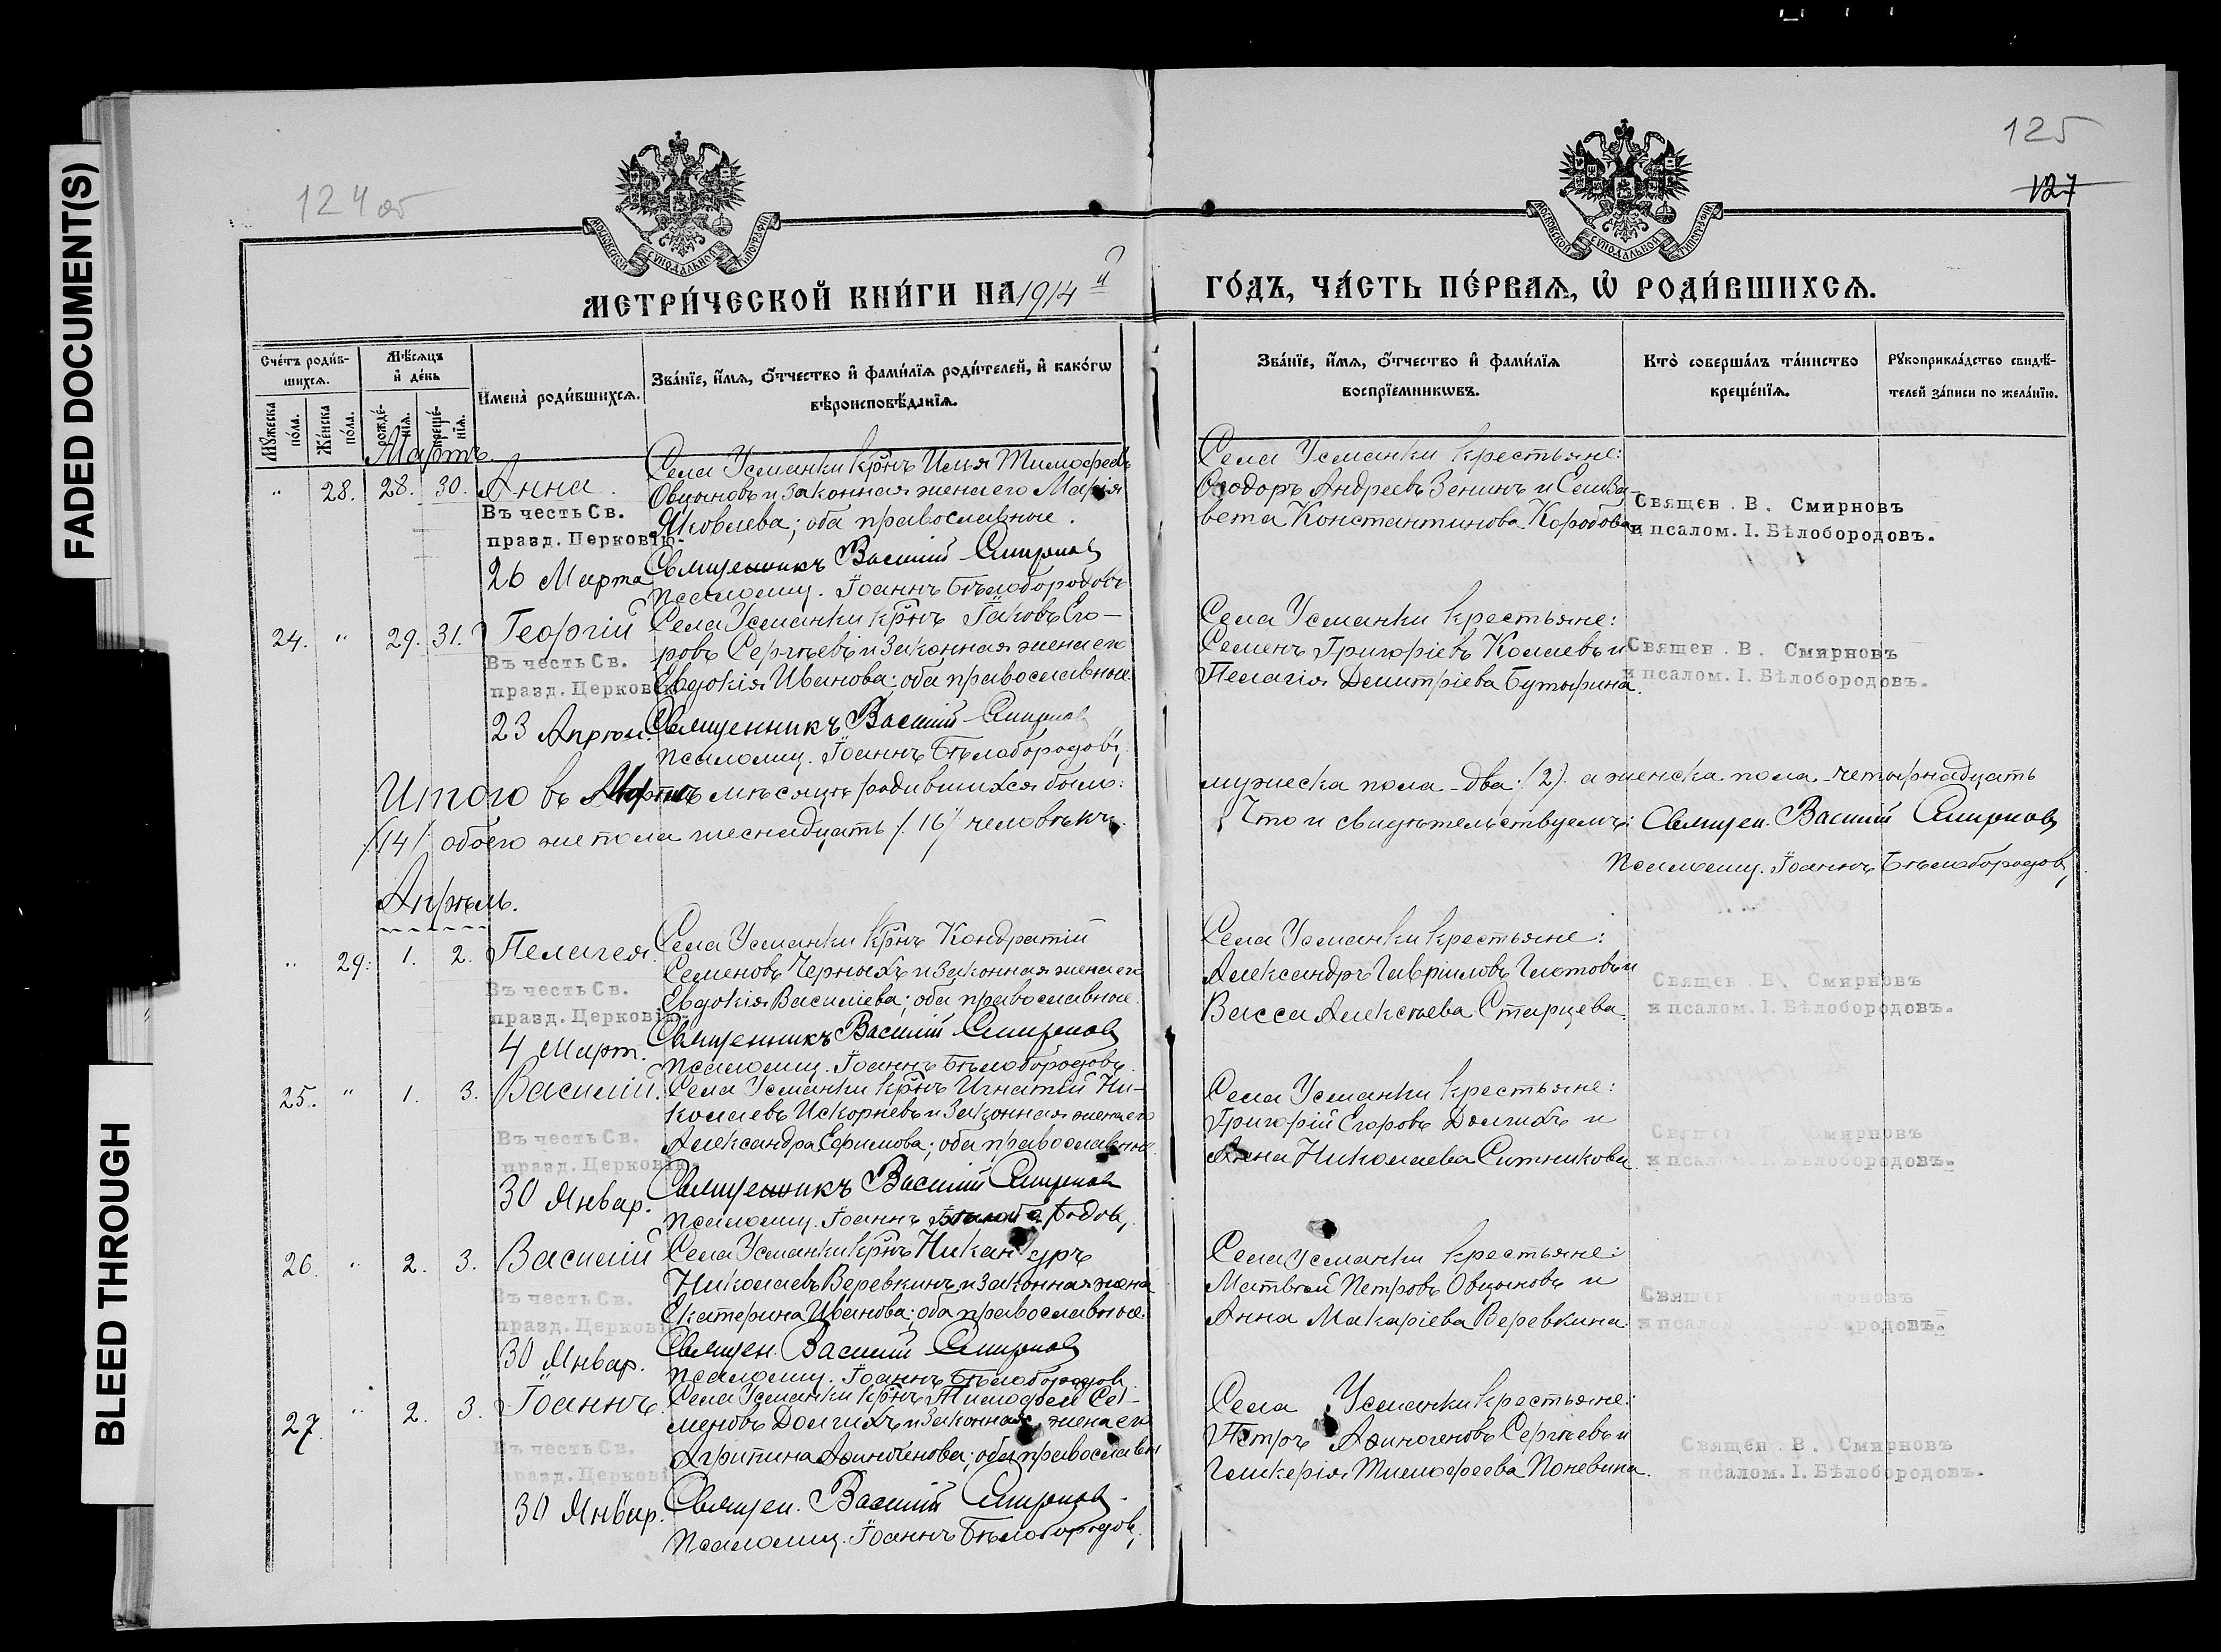 FADED DOCUMENT(S)
BLEED THROUGH
124 об
125
127
МОСКОВСКОЙ СѴНОДАЛЬНОЙ ТИПОГРАФІИ
МОСКОВСКОЙ СѴНОДАЛЬНОЙ ТИПОГРАФІИ
МЕТРИ́ЧЕСКОЙ КНИ́ГИ НА 1914 й
ГО́ДЪ, ЧА́СТЬ ПЕ́РВАѦ, Ѡ РОДИ́ВШИХСѦ.
Сче́тъ роди́в-
шихсѧ.
Мꙋ́жеска
по́ла.
Же́нска
по́ла.
Мѣ́сѧцъ
и҆ де́нь
рожде́-
нїѧ.
креще́-
нїѧ.
И҆мена̀ роди́вшихсѧ.
Зва́нїе, и҆́мѧ, о҆́тчество и҆ фами́лїѧ роди́телей, и҆ како́гѡ
вѣроисповѣ́данїѧ.
Зва́нїе, и҆́мѧ, о҆́тчество и҆ фами́лїѧ
воспрїе́мникѡвъ.
Кто̀ соверша́лъ та́инство
креще́нїѧ.
Рꙋкоприкла́дство свидѣ́-
телей за́писи по жела́нїю.
Мартъ.
" 28. 28. 30. Анна.
Въ честь Св.
празд. Церковію.
26 Марта
Села Усманки кр͠нъ Илья Тимофеевъ
Овцыновъ и законная жена его Марія
Яковлева; оба православные.
Священникъ Василий Смирнов
Псаломщ. Іоаннъ Бѣлобородовъ
Села Усманки крестьяне:
Ѳеодоръ Андреевъ Зенинъ и Елиза-
вета Константинова Коробова
Священ. В. Смирновъ
и псалом. І. Бѣлобородовъ.
24. " 29. 31. Георгій
Въ честь Св.
празд. Церковію
23 Апрѣл.
Села Усманки кр͠нъ Іаковъ Его-
ровъ Сергѣевъ и законная жена его
Евдокія Иванова; оба православные.
Священникъ Василий Смирнов
Псаломщ. Іоаннъ Бѣлобородовъ,
Села Усманки крестьяне:
Семенъ Григоріевъ Комаевъ и
Пелагія Димитріева Бутырина.
Священ. В. Смирновъ
и псалом. І. Бѣлобородовъ.
Итого въ Мартѣ мѣсяцѣ родившихся было:
мужеска пола два /2/ а женска пола четырнадцать
/14/ обоего же пола шеснадцать /16/ человѣкъ.
Что и свидѣтельствуемъ: Священ. Василий Смирнов
Псаломщ. Іоаннъ Бѣлобородов,
Апрѣль.
" 29. 1. 2. Пелагея.
Въ честь Св.
празд. Церковію
4 Март.
Села Усманки кр͠нъ Кондратій
Семеновъ Черныхъ и законная жена его
Евдокія Василіева; оба православные.
Священникъ Василий Смирнов
Псаломщ. Іоаннъ Бѣлобородовъ.
Села Усманки крестьяне:
Александръ Гавріиловъ Глотовъ и
Васса Алексѣева Старцева.
Священ. В. Смирновъ
и псалом. І. Бѣлобородовъ.
25. " 1. 3. Василій.
Въ честь Св.
празд. Церковію
30 Январ.
Села Усманки кр͠нъ Игнатій Ни-
колаевъ Искорневъ и законная жена его
Александра Ефимова; оба православные.
Священникъ Василий Смирнов
Псаломщ. Іоаннъ Бѣлобородов,
Села Усманки крестьяне:
Григорій Егоровъ Долгихъ и
Анна Николаева Ситникова.
Священ. Смирновъ
и псалом. І. Бѣлобородовъ.
26. " 2. 3. Василій
Въ честь Св.
празд. Церковію
30 Январ.
Села Усманки кр͠нъ Никандръ
Николаевъ Веревкинъ и законная жена
Екатерина Иванова; оба православные.
Священ. Василий Смирнов
Псаломщ. Іоаннъ Бѣлобородов
Села Усманки крестьяне:
Матвѣй Петровъ Овцыновъ и
Анна Макаріева Веревкина.
Священ. Смирновъ
и псалом. Бѣлобородовъ.
27. " 2. 3. Іоаннъ.
Въ честь Св.
празд. Церковію
30 Январ.
Села Усманки кр͠нъ Тимофей Се-
меновъ Долгихъ и законная жена его
Агрипина Аѳиногенова; оба православн
Священ. Василий Смирнов.
Псаломщ. Іоаннъ Бѣлобородов,
Села Усманки крестьяне:
Петръ Аѳиногеновъ Сергѣевъ и
Гликерія Тимофеева Поневина.
Священ. В. Смирновъ
и псалом. І. Бѣлобородовъ.